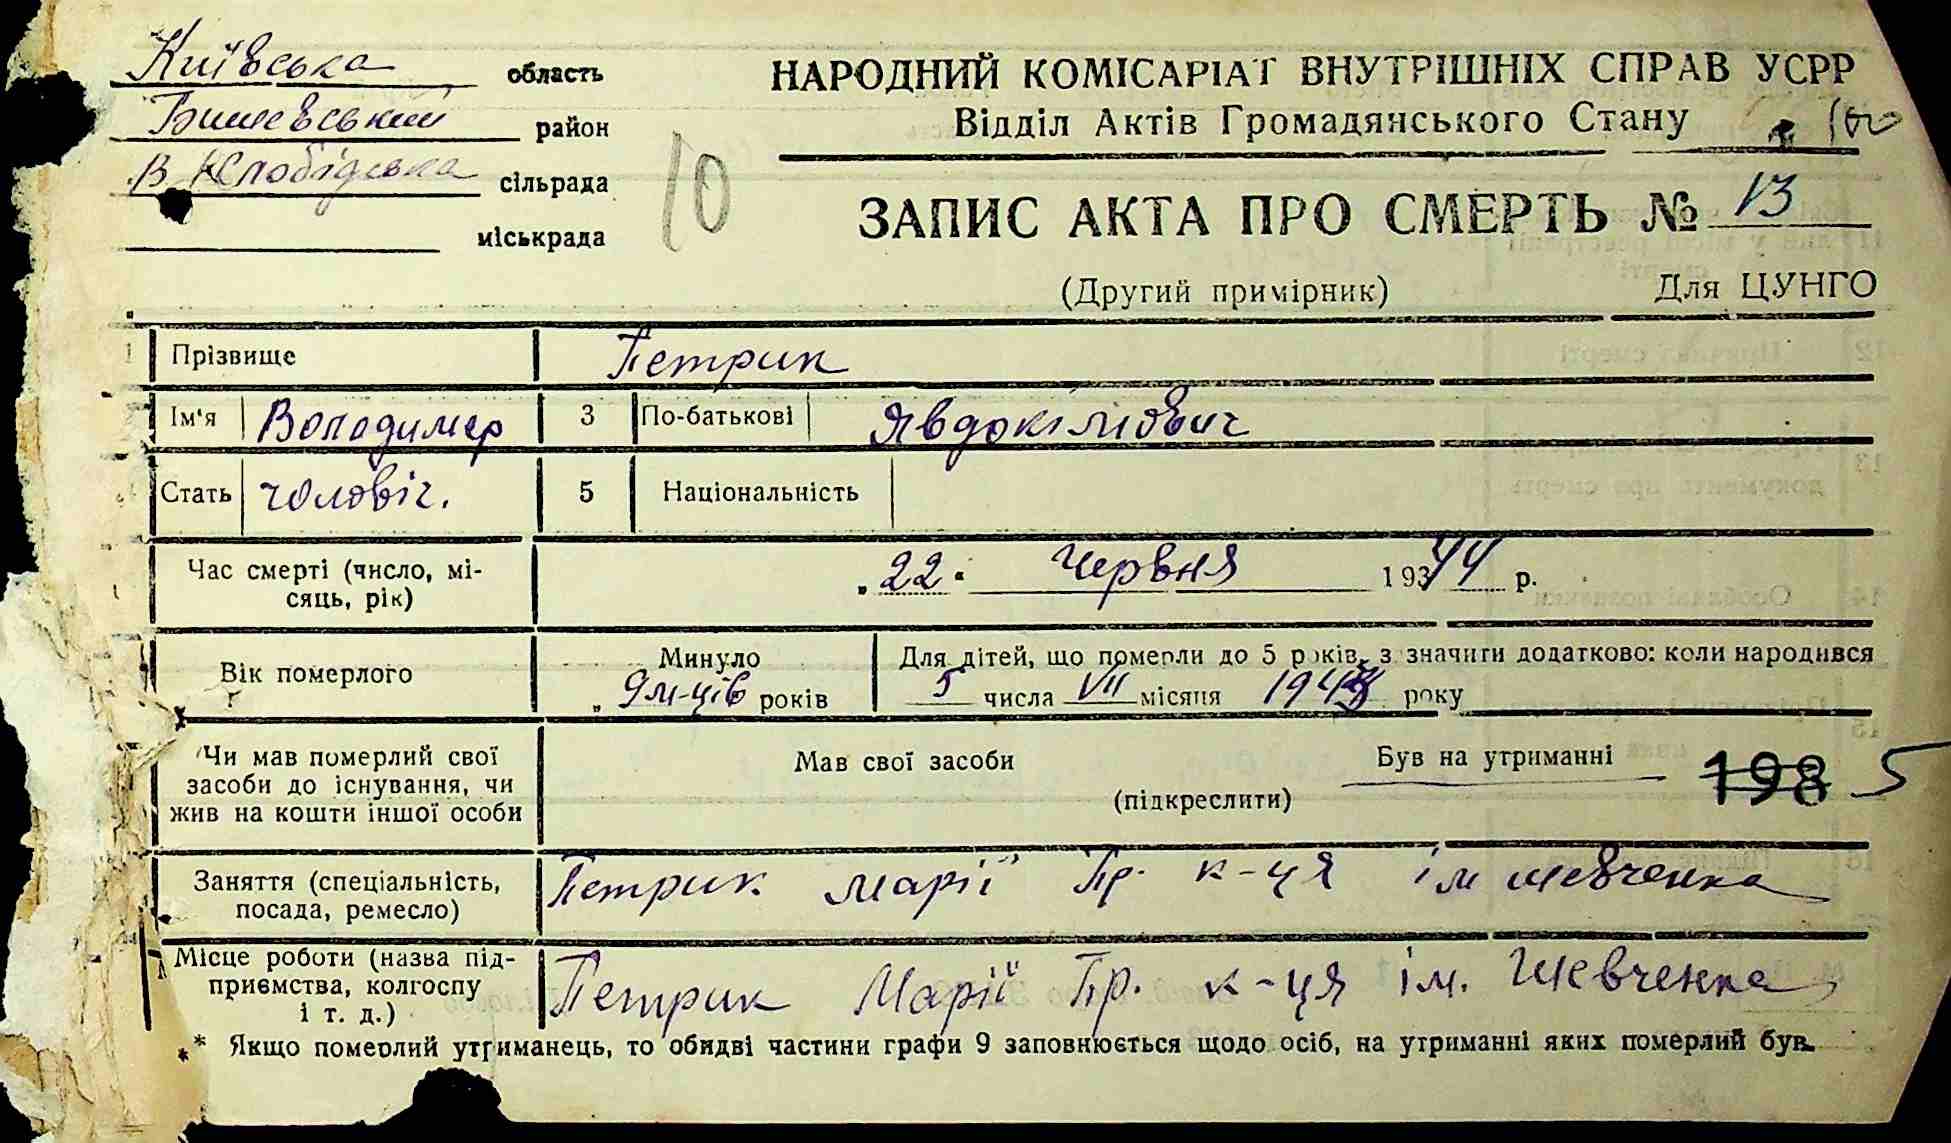 Київська область
Бишевський район
В Слобідська сільрада
міськрада
10
НАРОДНИЙ КОМІСАРІАТ ВНУТРІШНІХ СПРАВ УСРР
Відділ Актів Громадянського Стану
100
ЗАПИС АКТА ПРО СМЕРТЬ № 13
(Другий примірник) Для ЦУНГО
1 Прізвище Петрик
Ім'я Володимер 3 По-батькові Явдокімович
Стать чоловіч. 5 Національність
Час смерті (число, мі-
сяць, рік)
„22" Червня 19344 р.
Вік померлого
Минуло
„ 9 м-ців років
Для дітей, що померли до 5 років, зазначити додатково: коли народився
5 числа VII місяця 1943 року
Чи мав померлий свої
засоби до існування, чи
жив на кошти іншої особи
Мав свої засоби Був на утриманні
(підкреслити)
198 5
Заняття (спеціальність,
посада, ремесло)
Петрик Марії Пр. к-ця ім шевченка
Місце роботи (назва під-
приємства, колгоспу
і т. д.)
Петрик Марії Пр. к-ця ім. Шевченка
** Якщо померлий утриманець, то обидві частини графи 9 заповнюється щодо осіб, на утриманні яких померлий був.